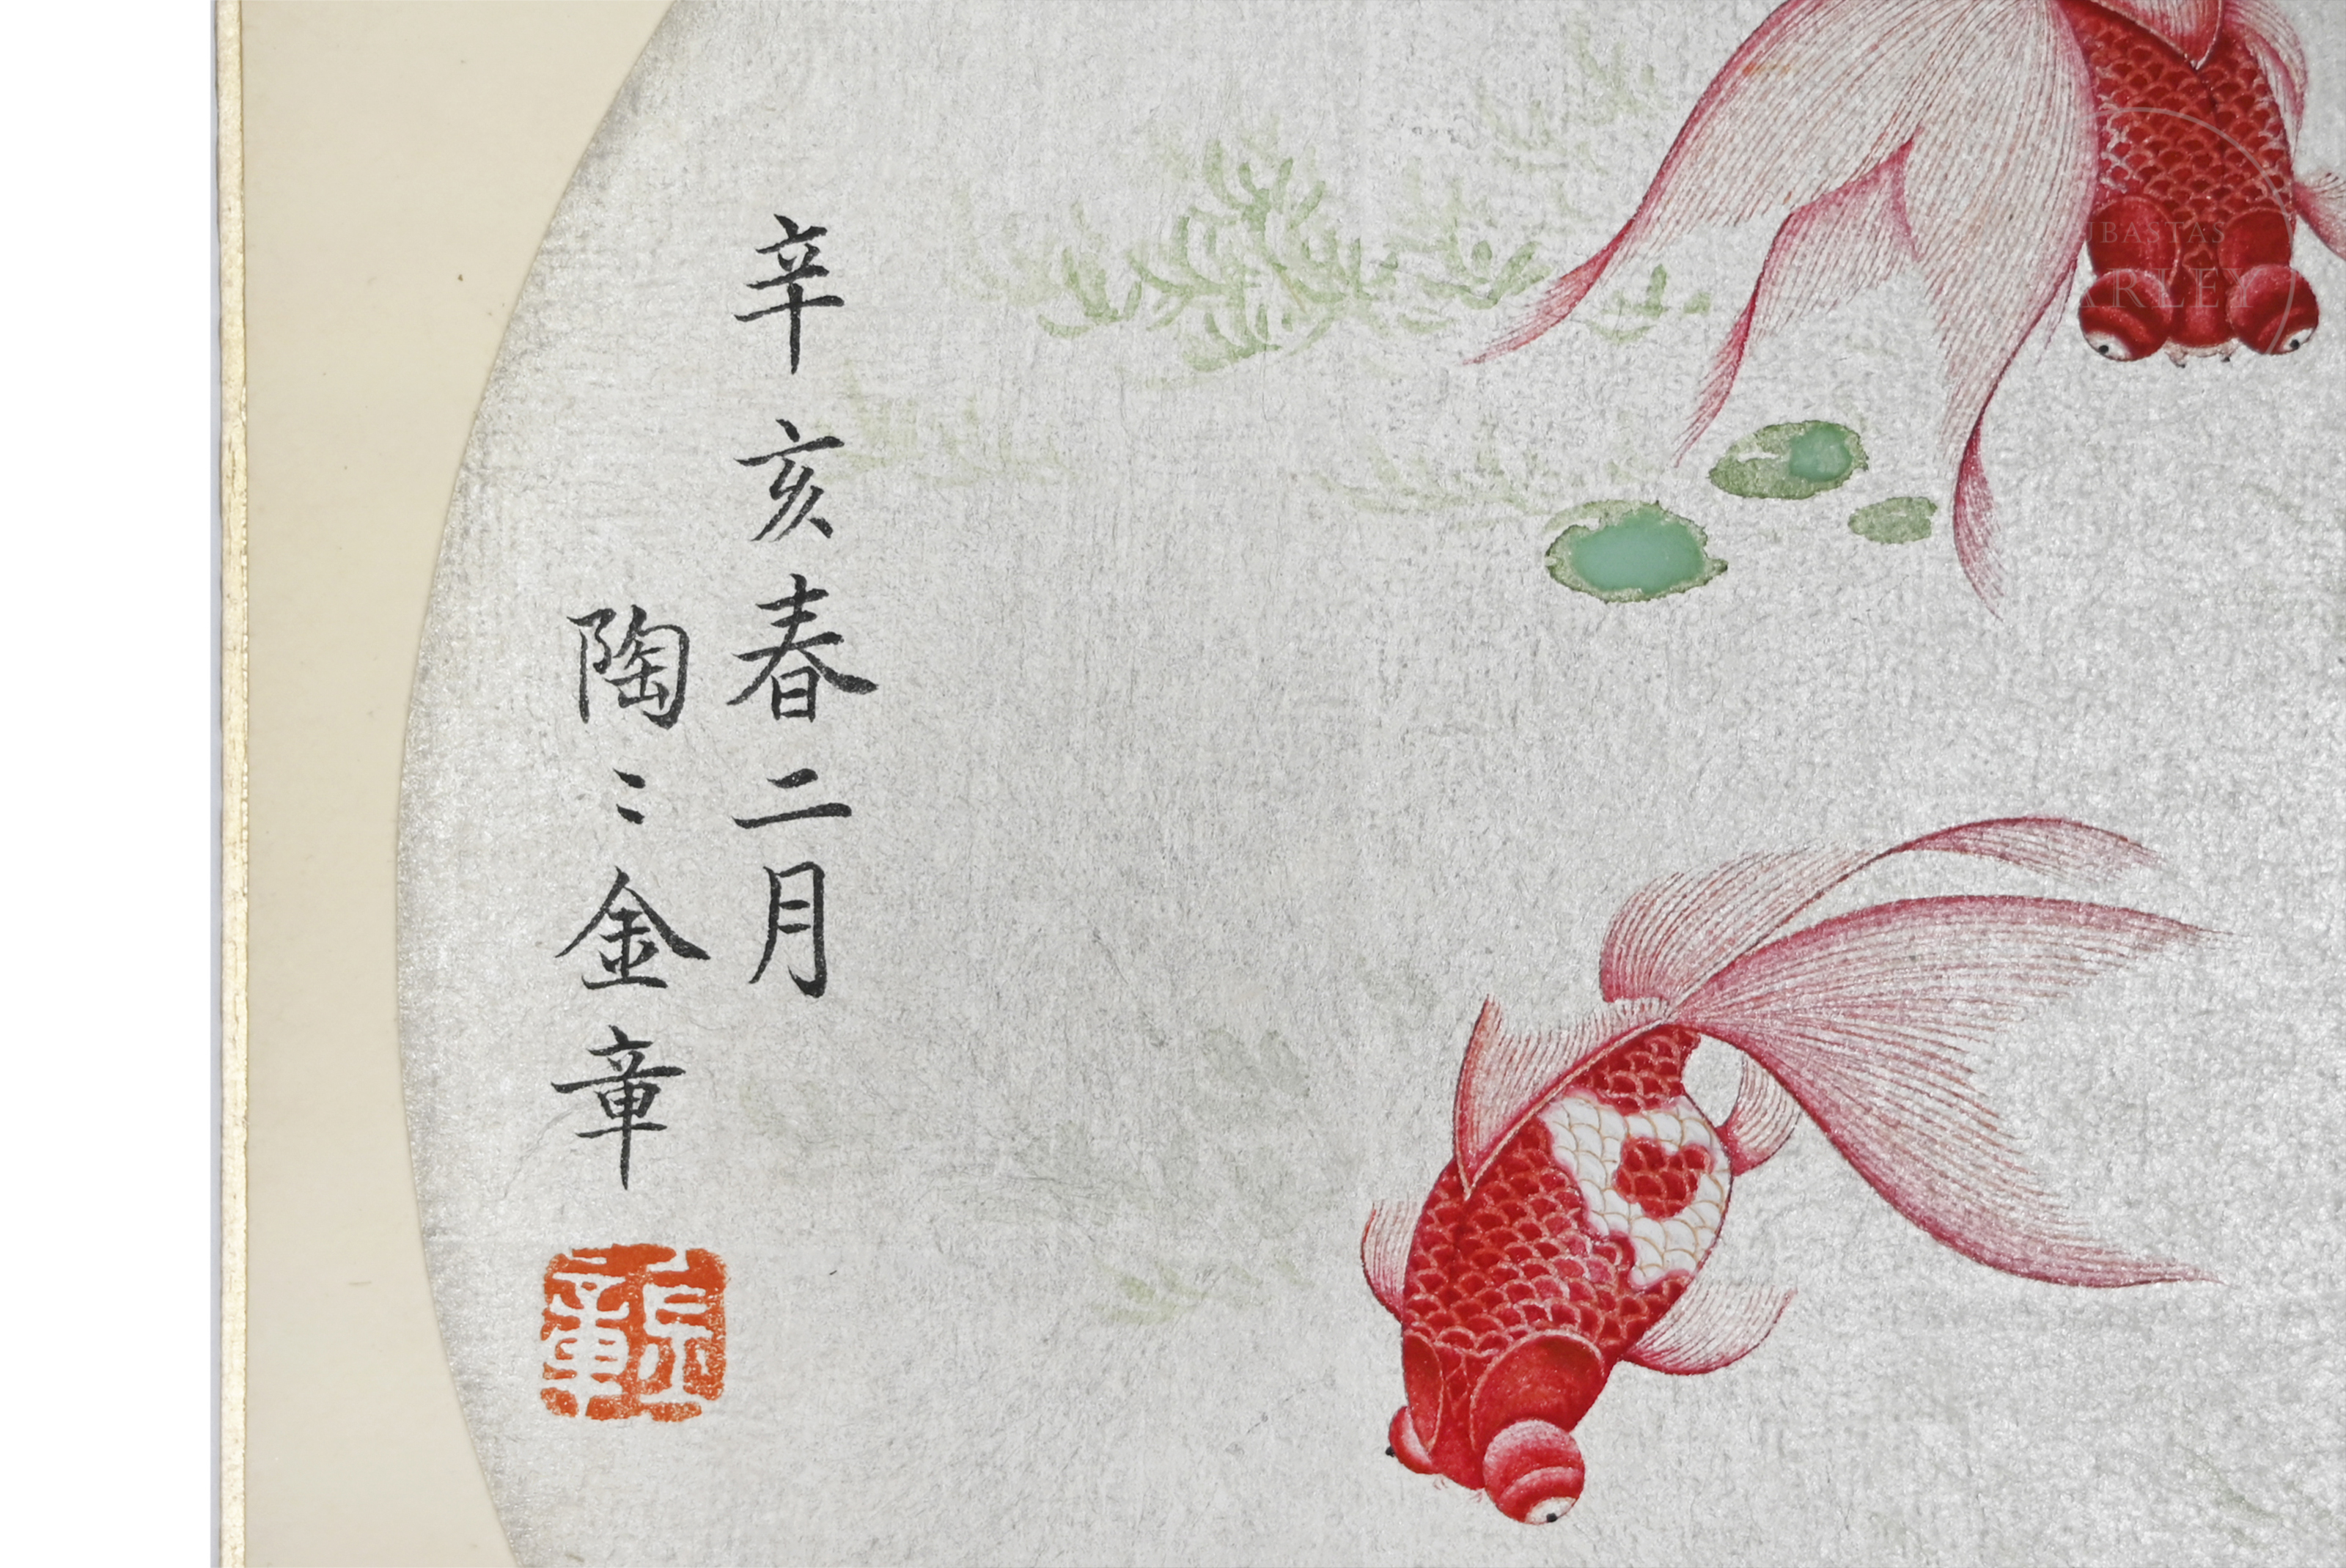 辛亥春二月
陶〻金章
UBASTAS
ARLEY